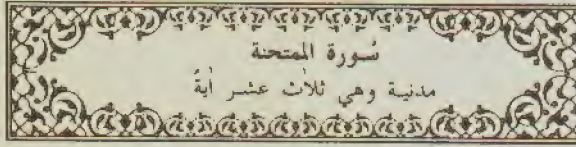 سُورة الممتحنة
مدنية وهي ثلاث عشر أيةً